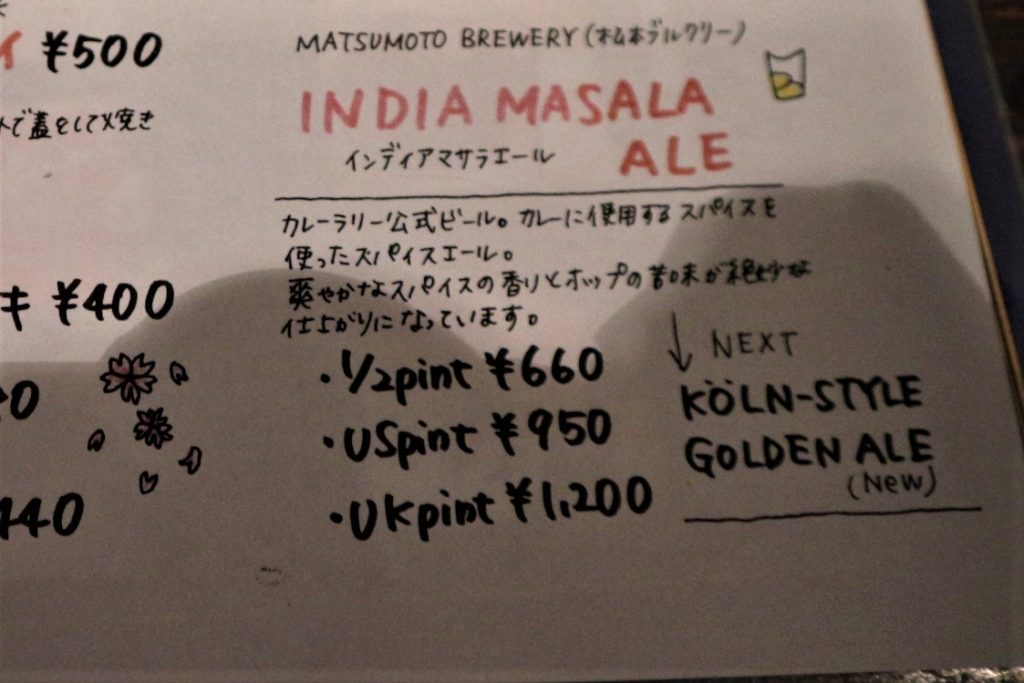 ¥500
で蓋をして〆焼き
キ ¥400
0
440
MATSUMOTO BREWERY (松本ブルワリー)
INDIA MASALA
ALE
インディアマサラエール
カレーラリー公式ビール。カレーに使用するスパイスを
使ったスパイスエール。
爽やかなスパイスの香りとホップの苦味が絶妙な
仕上がりになっています。
・1/2pint ¥660
・USpint ¥950
・UKpint ¥1,200
↓ NEXT
KÖLN-STYLE
GOLDEN ALE
(New)